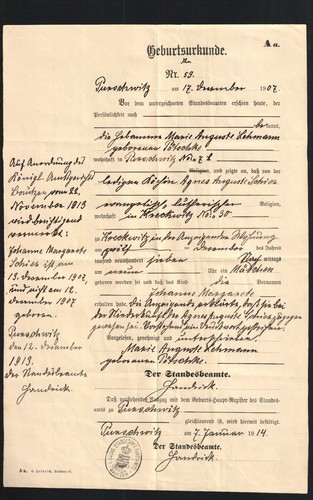 A a.
Geburtsurkunde.
Nr. 59.
Purschwitz am 17. Dezember 1907.
Vor dem unterzeichneten Standesbeamten erschien heute, der
Persönlichkeit nach
be kannt,
die Hebamme Marie Auguste Lehmann
geborenen Pötschke
wohnhaft in Purschwitz No. 72
Religion, und zeigte an, daß von der
ledigen Köchin Agnes Auguste
evangelisch lutherischer
wohnhaft in Kreckwitz No. 30
zu Kreckwitz in der Wohnung
am Dezember des Jahres
tausend neunhundert sieben Nach mittags
um neun Uhr ein Mädchen
geboren worden sei und daß das Kind die Vornamen
Johanne Margarete
erhalten habe. Die Anzeigende erklärte, daß sie bei
der Niederkunft der Agnes Auguste zugegen
gewesen sei.
Vorgelesen, genehmigt und unterschrieben.
Marie Auguste Lehmann
geborenen Pötschke.
Der Standesbeamte.
Handrick.
Daß vorstehender Auszug mit dem Geburts-Haupt-Register des Standes-
amts zu Purschwitz
gleichlautend ist, wird hiermit bestätigt.
Purschwitz am 7. Januar 1914.
Der Standesbeamte.
Handrick.
Auf Anordnung des
Königl. Amtsgerichts
Bautzen vom 22.
November 1913
wird berichtigend
vermerkt:
Johanne Margarete
ist am
13. Dezember 1907,
und nicht am 12.
Dezember 1907
geboren.
Purschwitz
den 12. Dezember
1913.
Der Standesbeamte
Handrick.
Aa.